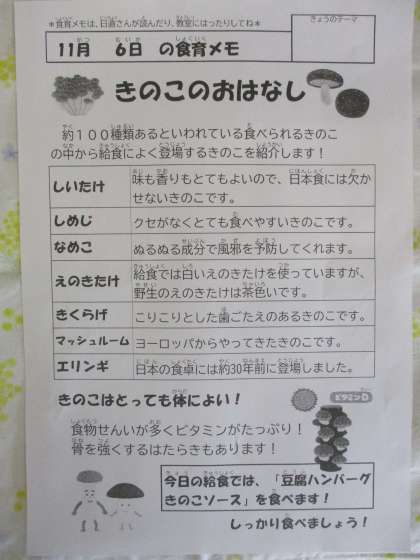 ＊食育メモは、日直さんが読んだり、教室にはったりしてね＊
きょうのテーマ
11月　6日　の食育メモ
きのこのおはなし
約１００種類あるといわれている食べられるきのこ
の中から給食によく登場するきのこを紹介します！
しいたけ
味も香りもとてもよいので、日本食には欠か
せないきのこです。
しめじ
クセがなくとても食べやすいきのこです。
なめこ
ぬるぬる成分で風邪を予防してくれます。
えのきたけ
給食では白いえのきたけを使っていますが、
野生のえのきたけは茶色いです。
きくらげ
こりこりとした歯ごたえのあるきのこです。
マッシュルーム
ヨーロッパからやってきたきのこです。
エリンギ
日本の食卓には約30年前に登場しました。
きのこはとっても体によい！
ビタミンD
食物せんいが多くビタミンがたっぷり！
骨を強くするはたらきもあります！
今日の給食では、「豆腐ハンバーグ
きのこソース」を食べます！
しっかり食べましょう！